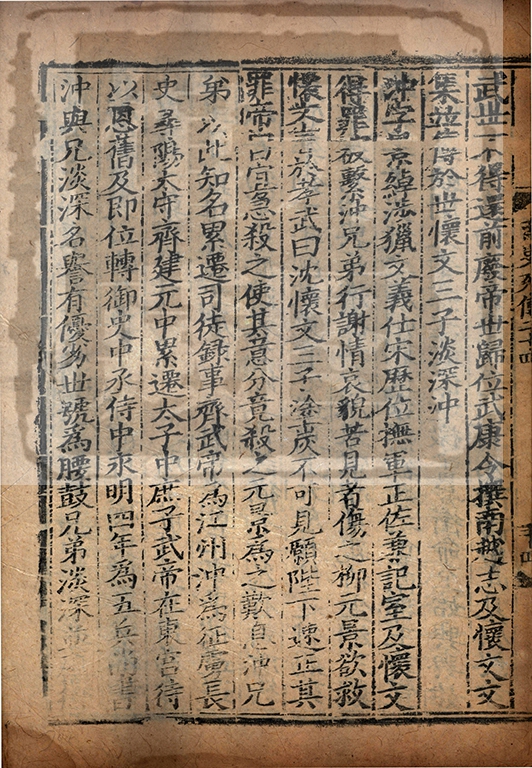 武世不得還前廢帝世歸位武康令撰南越志及懷文文
集並傳於世懷文三子淡深沖
沖字景綽涉獵文義仕宋歷位撫軍正佐兼記室及懷文
得罪被繫沖兄弟行謝情哀貌苦見者傷之柳元景欲救
懷文言於孝武曰沈懷文三子塗炭不可見願陛下速正其
罪帝曰宜急殺之使其意分竟殺之元景為之歎息沖兄
弟以此知名累遷司徒錄事齊武帝為江州沖為征虜長
史尋陽太守齊建元中累遷太子中庶子武帝在東宮待
以恩舊及即位轉御史中丞侍中永明四年為五兵尚書
沖與兄淡深名譽有優劣世號為腰鼓兄弟淡深並